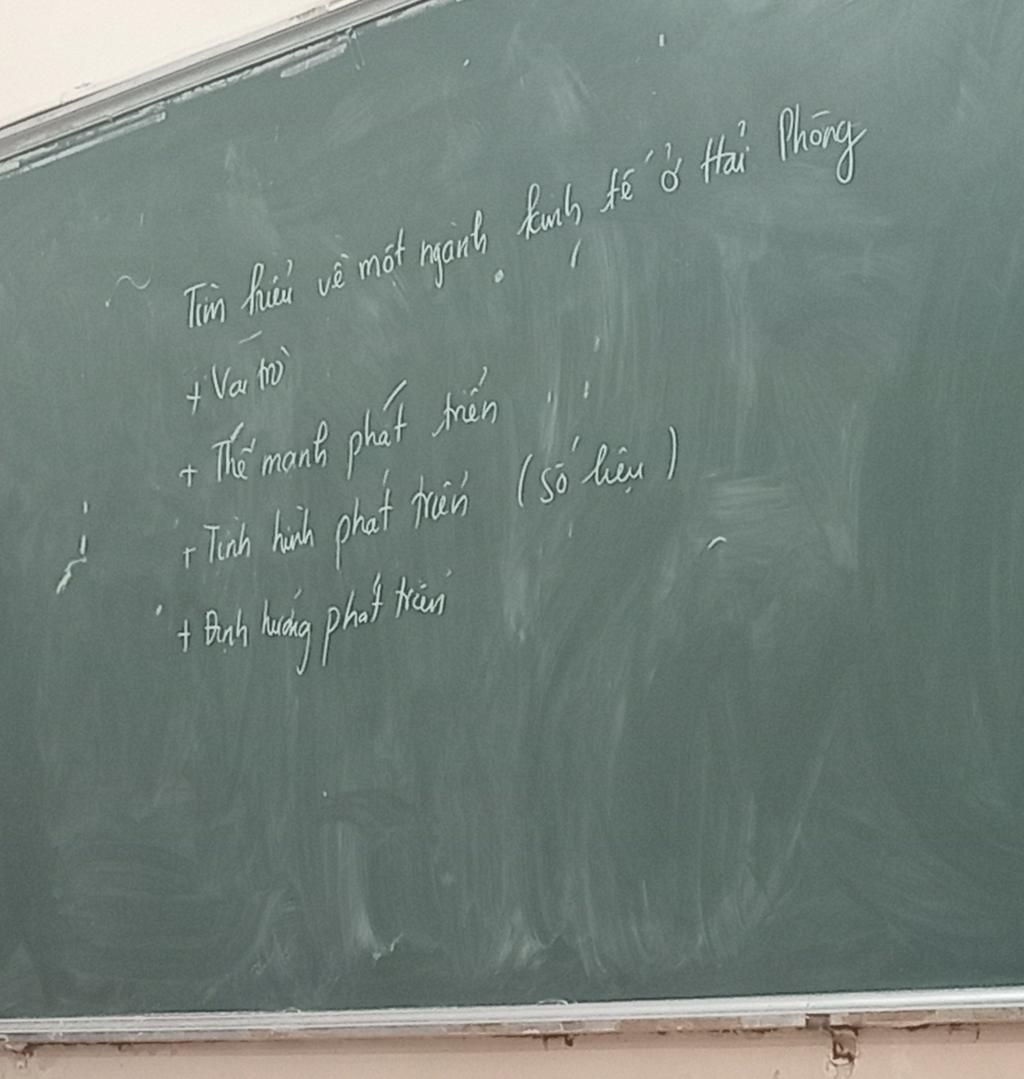 Tìm hiểu về một ngành kinh tế ở Hải Phòng
+ Vai trò
+ Thế mạnh phát triển
+ Tình hình phát triển (số liệu)
+ Định hướng phát triển